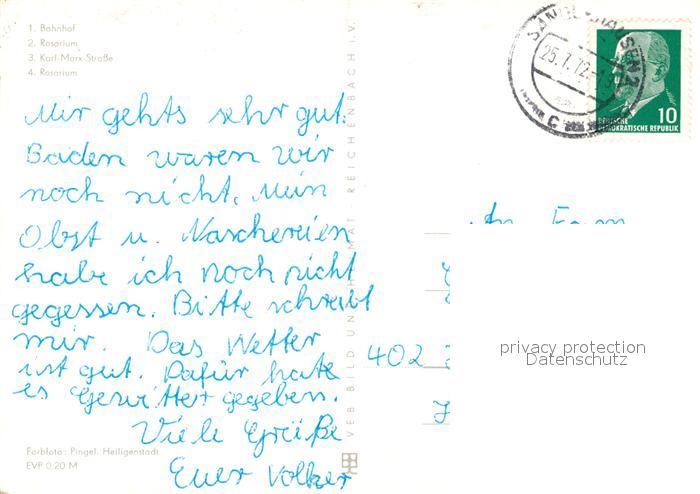 1. Bahnhof
2. Rosarium
3. Karl-Marx-Straße
4. Rosarium
Mir gehts sehr gut.
Baden waren wir
noch nicht. Mein
Obst u. Naschereien
habe ich noch nicht
gegessen. Bitte schreibt
mir. Das Wetter
ist gut. Dafür hate
es Gewitter gegeben.
Viele Grüße
Euer Volker
Farbfoto: Pingel, Heiligenstadt
EVP 0,20 M
VEB BILD UND HEIMAT REICHENBACH i.V.
SANGERHAUSEN 2
25.7.72
C
10
DEUTSCHE
DEMOKRATISCHE REPUBLIK
An Fam
402
privacy protection
Datenschutz